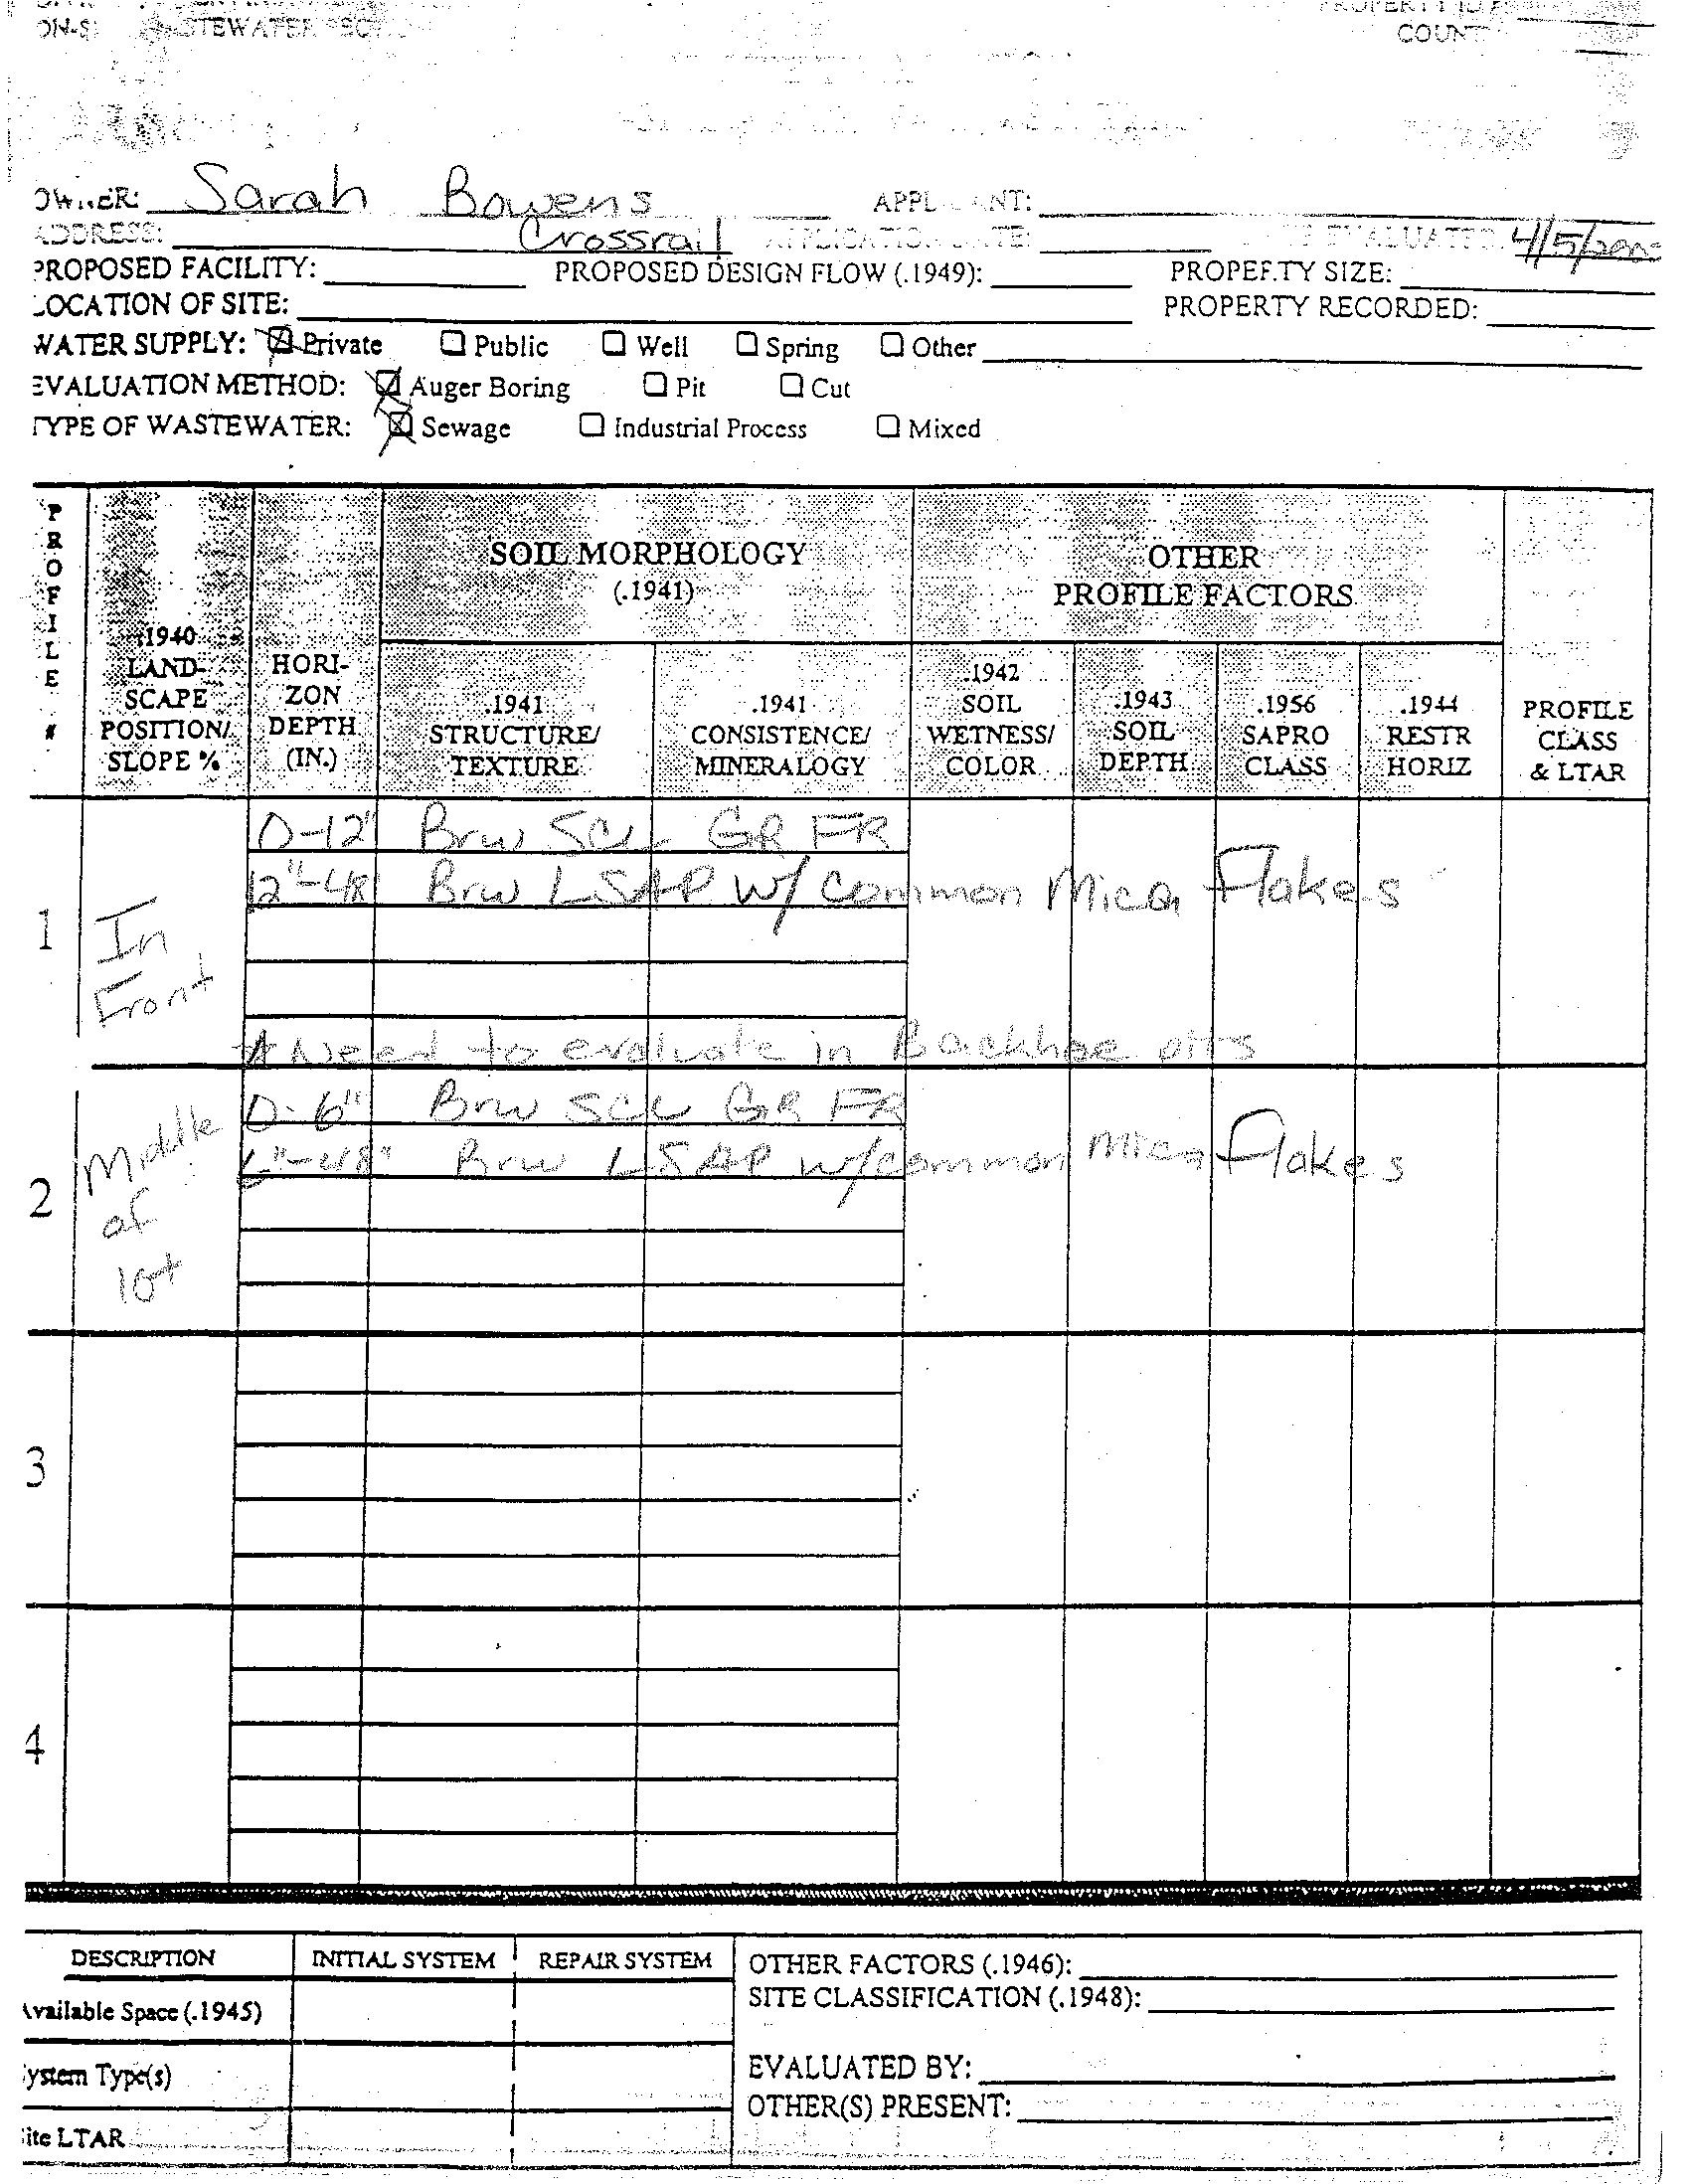 COUNT
OWNER: Sarah Bowens APPLICANT:
ADDRESS: Crossrail APPLICATION DATE: EVALUATED: 4/5/200
PROPOSED FACILITY: PROPOSED DESIGN FLOW (.1949): PROPERTY SIZE:
LOCATION OF SITE: PROPERTY RECORDED:
WATER SUPPLY: ☒ Private ☐ Public ☐ Well ☐ Spring ☐ Other
EVALUATION METHOD: ☒ Auger Boring ☐ Pit ☐ Cut
TYPE OF WASTEWATER: ☒ Sewage ☐ Industrial Process ☐ Mixed
PROFILE #
.1940 LAND-SCAPE POSITION/ SLOPE %
HORI-ZON DEPTH (IN.)
SOIL MORPHOLOGY
(.1941)
.1941 STRUCTURE/ TEXTURE
.1941 CONSISTENCE/ MINERALOGY
OTHER
PROFILE FACTORS
.1942 SOIL WETNESS/ COLOR
.1943 SOIL DEPTH
.1956 SAPRO CLASS
.1944 RESTR HORIZ
PROFILE CLASS & LTAR
1 In Front
0-12" Brw SCL GR FR
12"-48 Brw LSAP w/ common Mica Flakes
* Need to evaluate in Backhoe pits
2 Middle of lot
0-6" Brw SCL GR FR
6"-48" Brw LSAP w/common mica Flakes
3
4
DESCRIPTION INITIAL SYSTEM REPAIR SYSTEM OTHER FACTORS (.1946):
SITE CLASSIFICATION (.1948):
Available Space (.1945)
System Type(s) EVALUATED BY:
OTHER(S) PRESENT:
Site LTAR